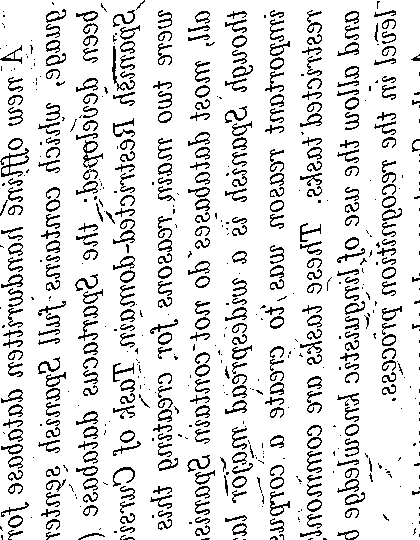 A new offline handwritten database for
guage, which contains full Spanish senten
been developed: the Spartacus database (
Spanish Restricted-domain Task of Cursi
were two main reasons for creating this
all, most databases do not contain Spanis
though Spanish is a widespread major la
important reason was to create a corpus
restricted tasks. These tasks are commonl
and allow the use of linguistic knowledge b
level in the recognition process.